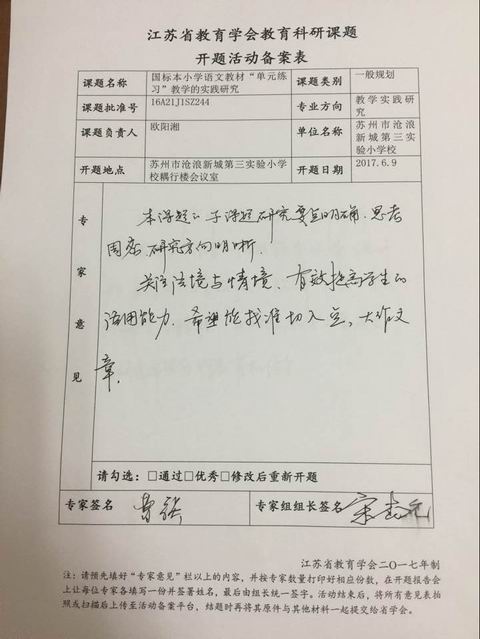 江苏省教育学会教育科研课题
开题活动备案表
课题名称 国标本小学语文教材“单元练习”教学的实践研究 课题类别 一般规划
课题批准号 16A21J1SZ244 专业方向 教学实践研究
课题负责人 欧阳湘 单位名称 苏州市沧浪新城第三实验小学校
开题地点 苏州市沧浪新城第三实验小学校耦行楼会议室 开题日期 2017.6.9
专家意见
本课题之子课题研究要点明确、思考
周密、研究方向明晰.
关注语境与情境、有效提高学生的
语用能力. 希望能找准切入点, 大作文
章.
请勾选：□通过□优秀□修改后重新开题
专家签名 专家组组长签名
江苏省教育学会二〇一七年制
注：请预先填好“专家意见”栏以上的内容，并按专家数量打印好相应份数，在开题报告会
上让每位专家各填写一份并签署姓名，最后由组长统一签字。活动结束后，将所有意见表拍
照或扫描后上传至活动备案平台，结题时再将其原件与其他材料一起提交给省学会。